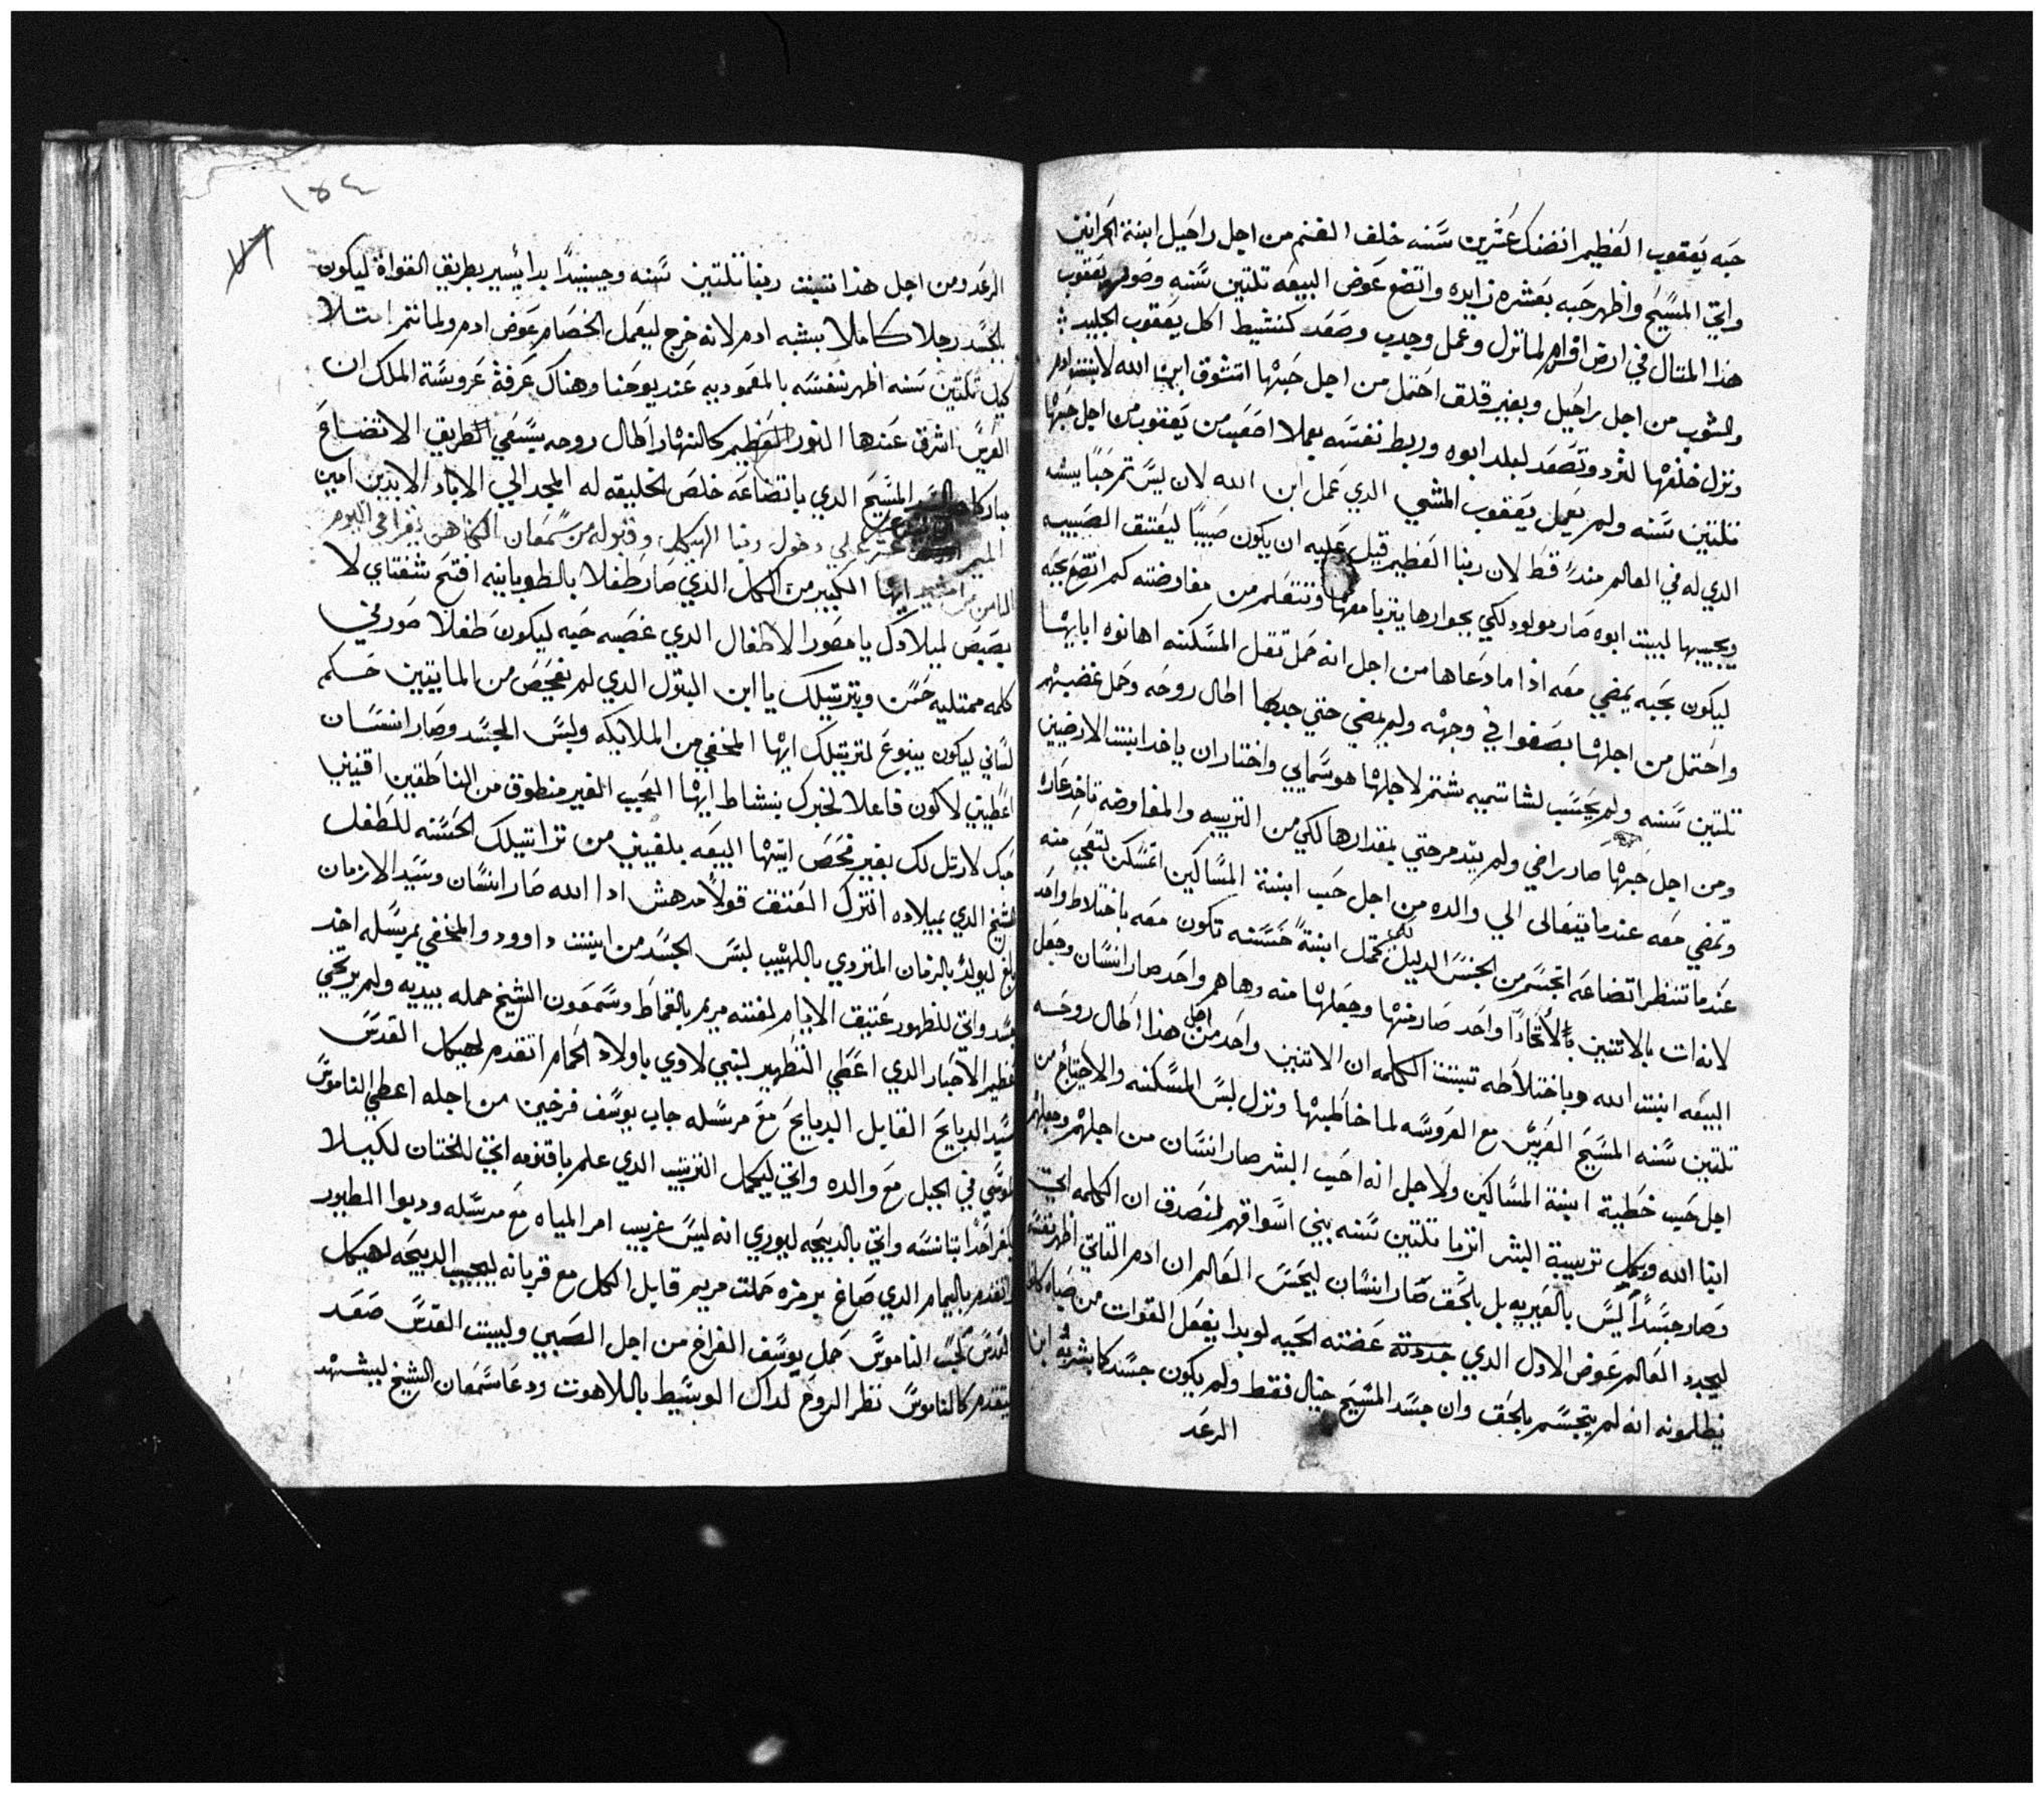 حبه يعقوب العظيم انضنك عشرين سنه خلف الغنم من اجل راحيل ابنة الحرانيين
واتي المسيح واظهر حبه بعشره زايده واتضع عوض البيعه تلتين سنه وصور يعقوب
هذا المتال في ارض اقوام لما نزل وعمل وجدب وصعد كنشيط اكل يعقوب الجليد
والشوب من اجل راحيل وبغير قلق احتمل من اجل حبها اتشوق ابن الله لابنت ادم
ونزل خلفها لترد وتصعد لبلد ابوه وربط نفسه بعملا اصعب من يعقوب من اجل حبها
تلتين سنه ولم يعمل يعقوب المشي الذي عمل ابن الله لان ليس تم حبا يشبه
الذي له في العالم مند قط لان ربنا العظيم قبل عليه ان يكون صبيا ليعتنق الصبييه
ويجيبها لبيت ابوه صار مولود لكي بجوارها يتربا معها وتتعلم من مفاوضته كم اتضع بحبه
ليكون بحبه يمضي معه اذا ما دعاها من اجل انه حمل تقل المسكنه اهانوه اباها
واحتمل من اجلها بصقوا في وجهه ولم يمضي حتي جدبها اطال روحه وحمل غضبهم
تلتين سنه ولم يحسب لشاتميه شتم لاجلها هو سمايي واختار ان ياخد ابنت الارضيين
ومن اجل حبها صار راضي ولم يتدمر حتي بمقدارها لكي من التربيه والمفاوضه تاخد عاده
وتمضي معه عندما يتعالى الي والده من اجل حب ابنة المساكين اتمسكن لتعجب منه
عندما تنظر اتضاعه اتجسم من الجنس الدليل لكي تحمل ابنة حسنه تكون معه باختلاط واحد
لانه ات بالاتنين بالاتحاد واحد صار منها وجعلها منه وهاهم واحد صار انسان وجعل
البيعه ابنت الله وباختلاطه تبتت الكلمه ان الاتنين واحد من اجل هذا اطال روحه
تلتين سنه المسيح العريس مع العروسه لما خاطبها ونزل لبس المسكنه والاحتياج من
اجل حب خطية ابنة المساكين ولاجل انه احب البشر صار انسان من اجلهم وجعلهم
ابنا الله وبكمل تربية البشر اتربا تلتين سنه بيني اسواقهم لنصدق ان الكلمه اتي
وصار جسدا ليس بالغيريه بل بالحق صار انسان ليحس العالم ان ادم التاني اظهر نفسه
ليجدد العالم عوض الاول الذي جددته عضته الحيه لو بدا يفعل القوات من صباه كانوا
يظلمونه انه لم يتجسم بالحق وان جسد المسيح خيال فقط ولم يكون جسد كما بشر به ابن
الرعد
١٥٤
الرعد ومن اجل هذا تبت ربنا تلتين سنه وحينيدا بدا يسير بطريق القواة ليكون
بالجسد رجلا كاملا بشبه ادم لانه خرج ليعمل الخصام عوض ادم ولما تم امتلا
كيل تلتين سنه اظهر نفسه بالمعموديه عند يوحنا وهناك عرفة عروسة الملك ان
العريس اشرق عندها النور العظيم كالنهار اطال روحه يسعي الطريق الاتضاع
مبارك المسيح الذي باتضاعه خلص الخليقه له المجد الي الاباد الابدين امين
الميمر علي دخول ربنا الهيكل وقبوله من سمعان الكاهن يقرا في اليوم
التامن من امشير ايها الكبير من الكل الذي صار طفلا بالطوبانيه افتح شفتاي لا
بصبص لميلادك يا مصور الاطفال الذي غصبه حبه ليكون طفلا صورني
كلمه ممتليه حسن وبترتيلك يا ابن البتول الذي لم تفحص من المايتين حكم
لساني ليكون ينبوع لترتيلك ايها المخفي من الملايكه ولبس الجسد وصار انسان
اعطيني لاكون فاعلا لخبرك بنشاط ايها العجيب الغير منطوق من الناطقين اقنيني
حبك لارتل لك بغير فحص ايتها البيعه بلغيني من تراتيلك الحسنه للطفل
الشيخ الذي بميلاده انترك العتق قولا مدهش ادا الله صار انسان وسيد الازمان
بلغ ليولد بالزمان المتردي باللهيب لبس الجسد من ابنت داوود والمخفي بمرسله اخد
جسد واتي للظهور عتيق الايام لفته مريم بالقماط وسمعون الشيخ حمله بيديه ولم يرتخي
عظيم الاحبار الذي اعطي التطهير لبني لاوي باولاد الحمام اتقدم لهيكل القدس
سيد الدبايح القايل الدبايح مع مرسله جاب يوسف فرخين من اجله اعطي الناموس
لموسي في الجبل مع والده واتي ليكمل الترتيب الذي علم باقنومه اتي للختان لكيلا
يكفر احدا بتانسه واتي بالدبيحه ليوري انه ليس غريب امر المياه مع مرسله ودبوا الطيور
واتقدم باليمام الذي صاغ برمزه حملت مريم قايل الكل مع قربانه ليجيب الدبيحه لهيكل
القدس كحب الناموس حمل يوسف الفراخ من اجل الصبي ولبيت القدس صعد
ليتقدم كالناموس نظر الروح لداك الوسيط باللاهوت ودعا سمعان الشيخ ليشهد